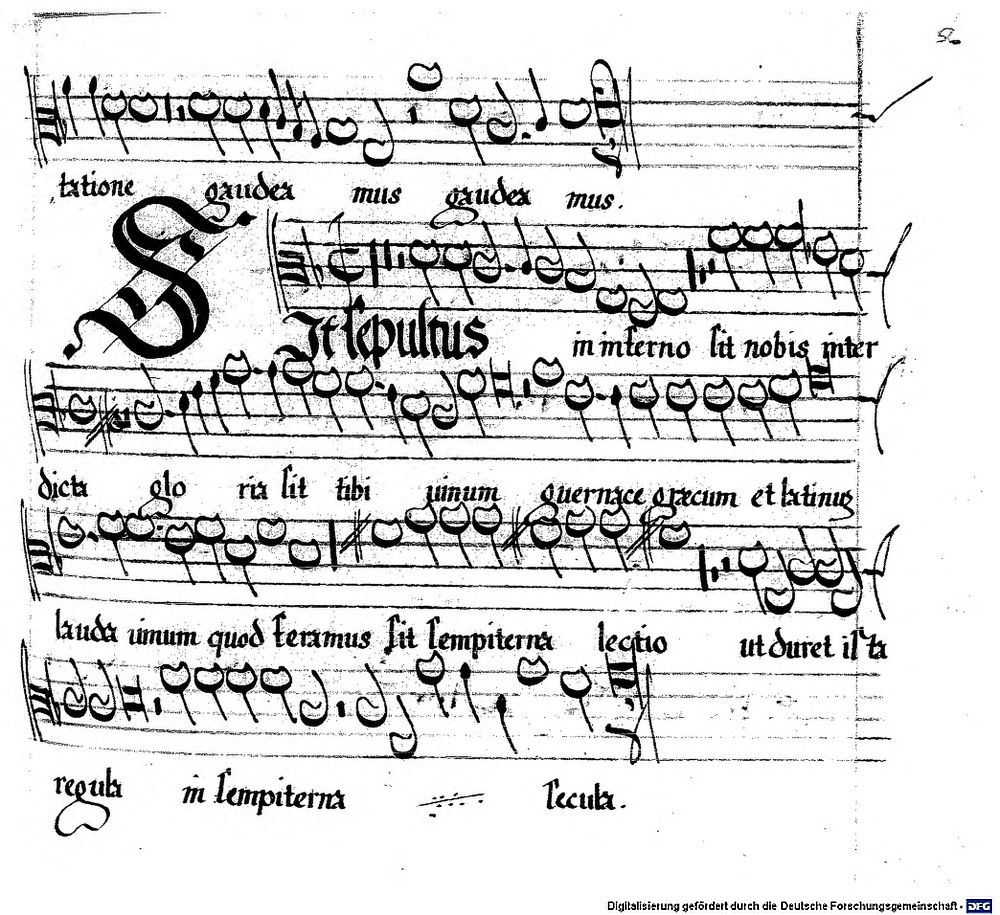 tatione gaudea mus gaudea mus.
Sit sepultus in inferno sit nobis inter
dicta glo ria sit tibi uinum quernace græcum et latinus
lauda uinum quod feramus sit sempiterna lectio ut duret ista
regula in sempiterna secula.
Digitalisierung gefördert durch die Deutsche Forschungsgemeinschaft - DFG